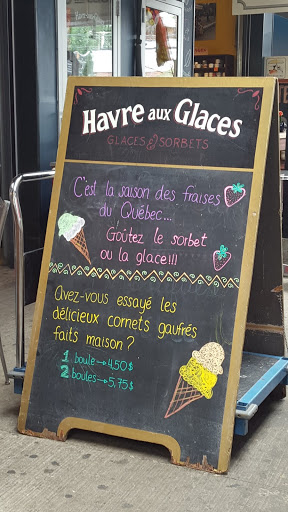 Havre aux Glaces
GLACES & SORBETS
C'est la saison des fraises
du Québec...
Goûtez le sorbet
ou la glace!!!
Avez-vous essayé les
délicieux cornets gaufrés
faits maison?
1 boule → 4,50$
2 boules → 5,75$